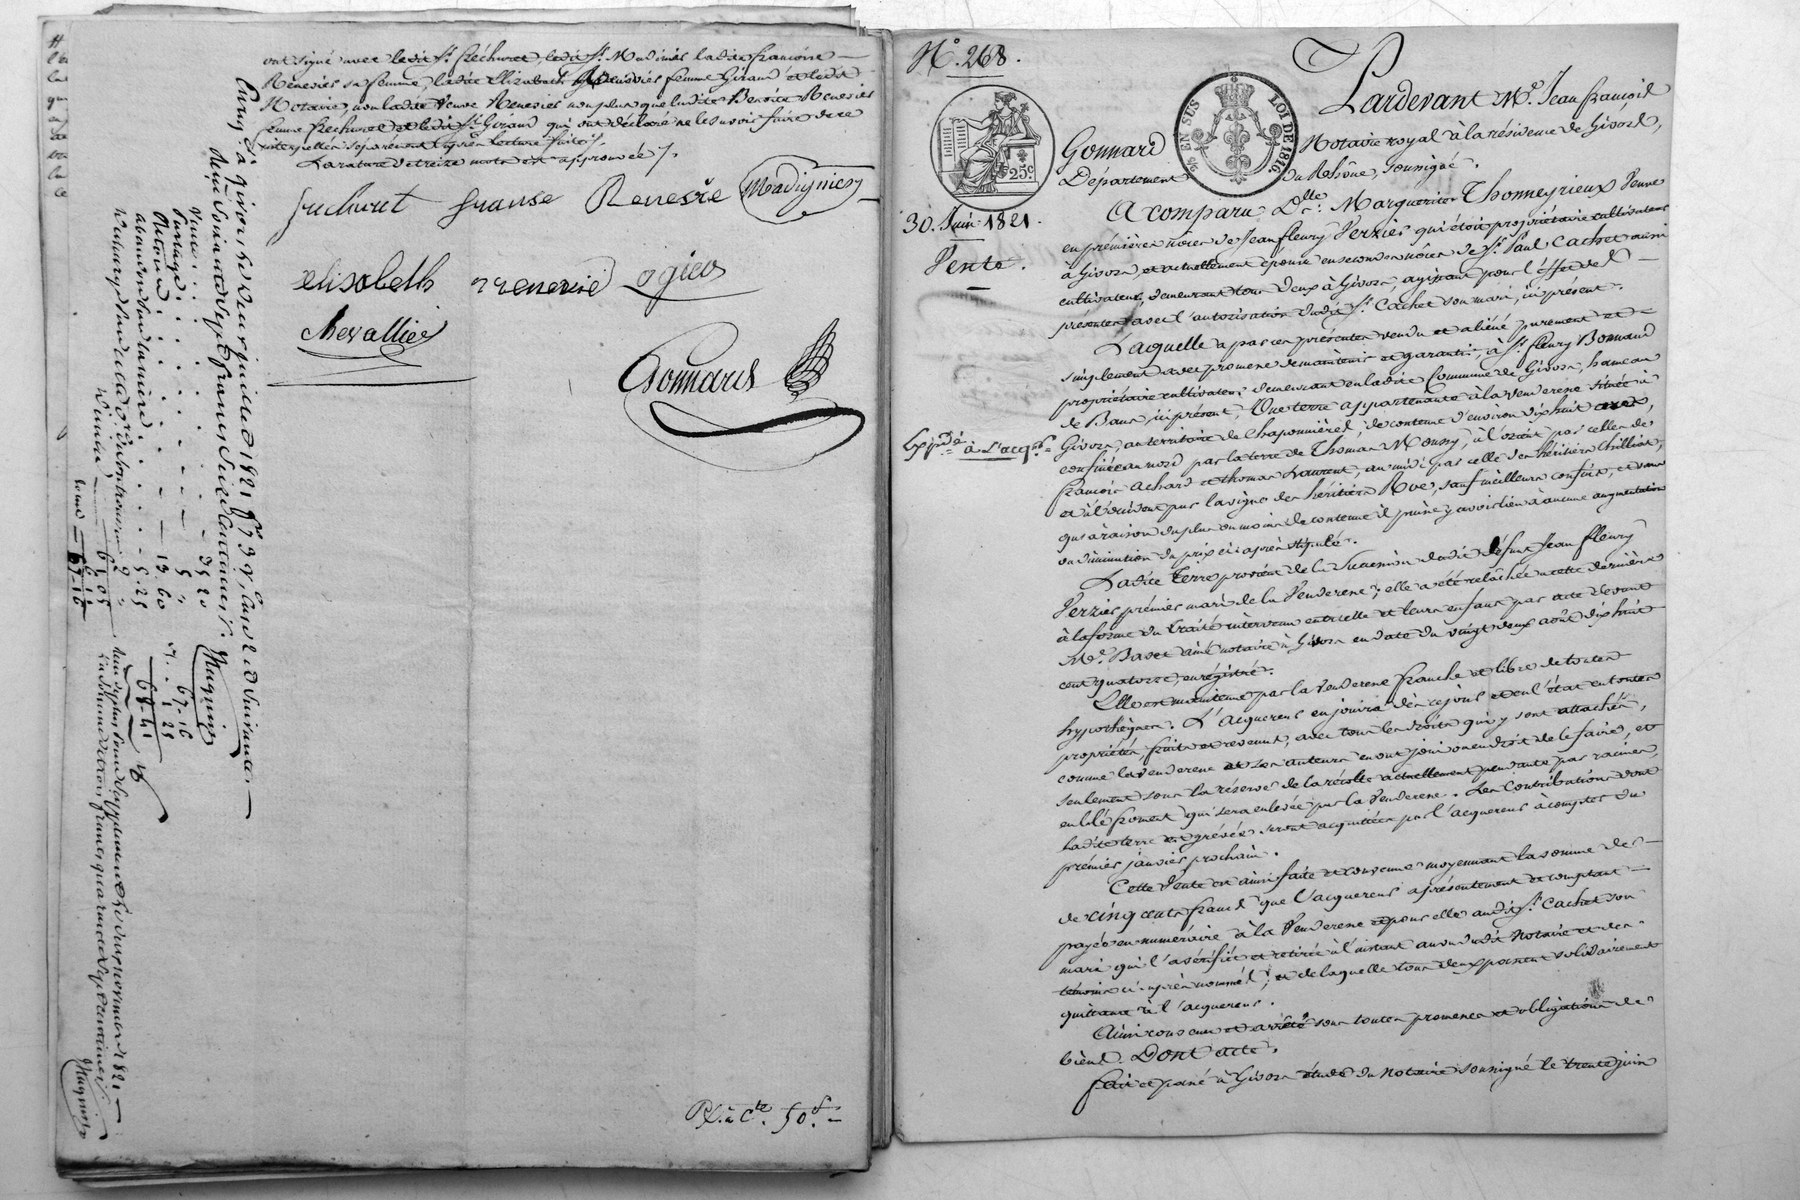 ont signé avec ledit Sr. frechuret, ledit Sr. Madinier ladite françoise
Renevier sa femme, ladite Elizabeth Renevier femme Giraud et ledit
Notaire, non ladite Veuve Renevier non plus que ladite Benoite Renevier
femme frechuret et ledit Sr. Giraud qui ont déclaré ne le savoir faire de ce
interpellés séparément après lecture faite.
La rature de treize mots est approuvée.
frechuret franse Renevié Madignier
elisabeth renevié ogier
chevallier
Gonnard
Enreg. à givors le deux juillet 1821
reçu soixante sept francs seize centimes.
Vente 35 20
partage 5 "
Retour 13 60
5 . 25
2 "
61 . 05
6 . 11
67 - 16
67 - 16
1 . 25
68 - 41
Huguin
Huguin
Exp. à Cte. 50.
No. 268.
25 EN SUS LOI DE 1816.
25c
30. Juin 1821.
Vente.
Expédé. à l'acqr.
Pardevant Me. Jean françois
Gonnard Notaire royal à la résidence de Givors,
Département du Rhône, soussigné.
A comparu Dlle. Marguerite Thonneyrieux Veuve
en premières nôces de Jean fleury Verzier qui étoit propriétaire cultivateur
à Givors, et actuellement épouse en secondes nôces de Sr. Paul Cachet aussi
cultivateur, demeurant tous deux à Givors, agissant pour l'effet des
présentes avec l'autorisation dudit Sr. Cachet son mari, ici présent.
Laquelle a par ces présentes vendu et aliéné purement et
simplement avec promesse de maintenir et garantir, à Sr. fleury Bonnaud
propriétaire cultivateur, demeurant en ladite Commune de Givors, hameau
de Bans, ici présent, Une terre appartenante à la venderesse située à
Givors, au territoire de Chaponnières, de contenue d'environ dix huit ares,
confinée au nord par la terre de Thomas Mouny, à l'orient par celles de
françois Achard et thomas Laurent, au midi par celle des héritiers Chilliat,
et à l'occident par la vigne des héritiers Roue, sauf meilleurs confins, et sans
qu'à raison du plus ou moins de contenue il puisse y avoir lieu à aucune augmentation
ou diminution du prix ci après stipulé.
Ladite terre provient de la Succession dudit défunt Jean fleury
Verzier premier mari de la Venderesse; elle a été relâchée à cette dernière
à la forme du traité intervenu entr'elle et leurs enfans par acte devant
Me. Bavet ainé notaire à Givors en date du vingt deux août dix huit
cent quatorze, enrégistré.
Elle est maintenue par la Venderesse franche et libre de toutes
hypothèques. L'acquereur en jouira dès ce jour et en l'état en toutes
propriétés, fruits et revenus, avec tous les droits qui y sont attachés,
comme la venderesse et ses auteurs en ont joui ou eu droit de le faire, et
seulement sous la réserve de la récolte actuellement pendante par racines,
en blé froment qui sera enlevée par la Venderesse. Les Contributions dont
ladite terre est grévée seront acquittées par l'acquereur à compter du
premier janvier prochain.
Cette Vente est ainsi faite et convenue moyennant la somme de
de cinq cents francs que l'acquereur a présentement et comptant
payée en numéraire à la Venderesse et pour elle audit Sr. Cachet son
mari qui l'a vérifiée et retirée à l'instant au vu dudit Notaire et des
témoins ci après nommés, et de laquelle tous deux passent solidairement
quittance à l'acquereur.
Ainsi convenu et arrêté sous toutes promesses et obligations de
biens. Dont acte.
fait et passé à Givors étude du Notaire soussigné le trente juin